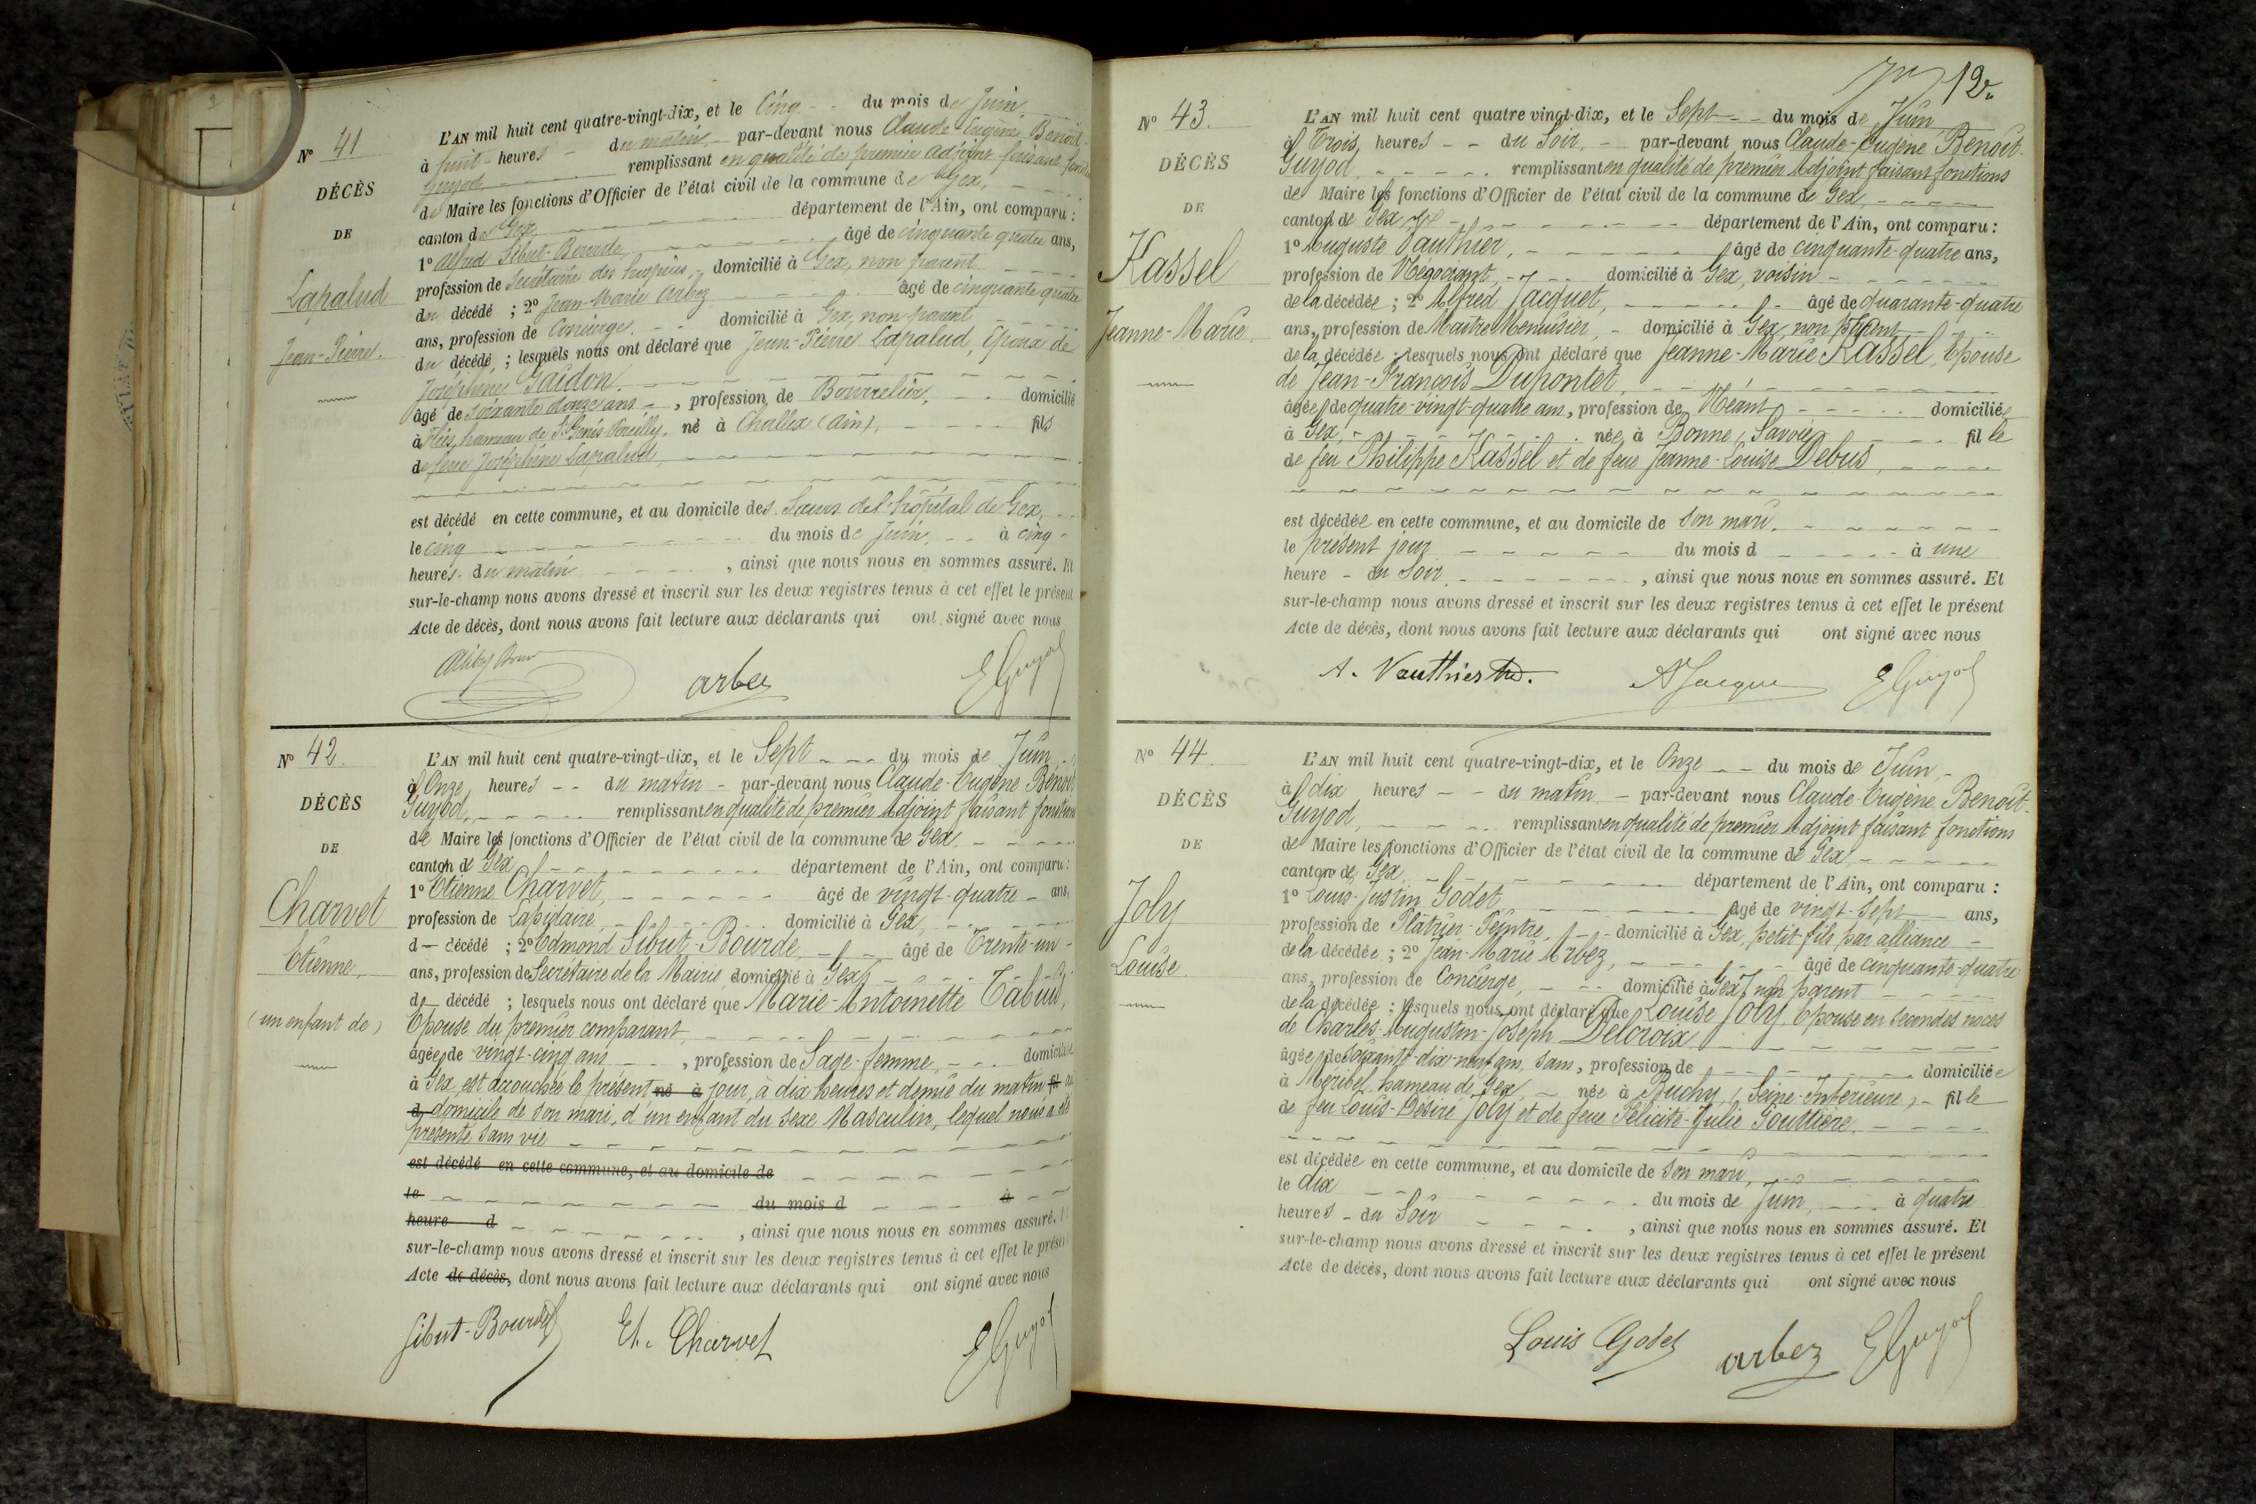 N° 41
DÉCÈS
DE
Lapalud
Jean-Pierre.
L'AN mil huit cent quatre-vingt-dix, et le Cinq du mois de Juin
à huit heures du matin, par-devant nous Claude-Eugène Benoit-
Guyod, remplissant en qualité de premier Adjoint faisant fonctions
de Maire les fonctions d'Officier de l'état civil de la commune de Gex,
canton de Gex département de l'Ain, ont comparu :
1° Alfred Sibut-Bourde, âgé de cinquante quatre ans,
profession de Secrétaire des hospices, domicilié à Gex, non parent
du décédé ; 2° Jean-Marie Arbez âgé de cinquante quatre
ans, profession de Concierge, domicilié à Gex, non parent
du décédé, ; lesquels nous ont déclaré que Jean-Pierre Lapalud, Epoux de
Joséphine Gaidon.
âgé de soixante douze ans, profession de Bourrelier, domicilié
à Flies, hameau de St Genis-Pouilly, né à Challex (Ain), fils
de feue Joséphine Lapalud,
est décédé en cette commune, et au domicile des Sœurs de l'hôpital de Gex,
le cinq du mois de Juin, à cinq
heures du matin, ainsi que nous nous en sommes assuré. Et
sur-le-champ nous avons dressé et inscrit sur les deux registres tenus à cet effet le présent
Acte de décès, dont nous avons fait lecture aux déclarants qui ont signé avec nous
arbez EGuyod
N° 42.
DÉCÈS
DE
Charvet
Etienne,
(un enfant de)
L'AN mil huit cent quatre-vingt-dix, et le Sept du mois de Juin
à Onze heures du matin - par-devant nous Claude-Eugène Benoit-
Guyod, remplissant en qualité de premier Adjoint faisant fonctions
de Maire les fonctions d'Officier de l'état civil de la commune de Gex,
canton de Gex département de l'Ain, ont comparu :
1° Etienne Charvet, âgé de vingt-quatre ans,
profession de Lapidaire, domicilié à Gex,
d décédé ; 2° Edmond Sibut-Bourde, âgé de Trente-un
ans, profession de Secrétaire de la Mairie, domicilié à Gex,
d décédé ; lesquels nous ont déclaré que Marie-Antoinette Tabuis,
Epouse du premier comparant,
âgée de vingt-cinq ans, profession de Sage-femme, domiciliée
à Gex, est accouchée le présent né à jour, à dix heures et demie du matin fil au
d domicile de son mari, d'un enfant du sexe Masculin, lequel nous a été
présenté sans vie
est décédé en cette commune, et au domicile de
le du mois d à
heure d , ainsi que nous nous en sommes assuré. Et
sur-le-champ nous avons dressé et inscrit sur les deux registres tenus à cet effet le présent
Acte de décès, dont nous avons fait lecture aux déclarants qui ont signé avec nous
Sibut-Bourde Et. Charvet EGuyod
12
N° 43.
DÉCÈS
DE
Kassel
Jeanne-Marie.
L'AN mil huit cent quatre vingt-dix, et le Sept du mois de Juin
à Trois heures du Soir, par-devant nous Claude-Eugène Benoit-
Guyod, remplissant en qualité de premier Adjoint faisant fonctions
de Maire les fonctions d'Officier de l'état civil de la commune de Gex,
canton de Gex département de l'Ain, ont comparu :
1° Auguste Vauthier, âgé de cinquante-quatre ans,
profession de Négociant, domicilié à Gex, voisin
de la décédée ; 2° Alfred Jacquet, âgé de quarante-quatre
ans, profession de Maître Menuisier, domicilié à Gex, non parent
de la décédée ; lesquels nous ont déclaré que Jeanne-Marie Kassel, Epouse
de Jean-François Dupontet,
âgée de quatre-vingt-quatre ans, profession de Néant domiciliée
à Gex, née à Bonne, Savoie, fille
de feu Philippe Kassel et de feue Jeanne-Louise Debus,
est décédée en cette commune, et au domicile de son mari,
le présent jour du mois d à une
heure du Soir, ainsi que nous nous en sommes assuré. Et
sur-le-champ nous avons dressé et inscrit sur les deux registres tenus à cet effet le présent
Acte de décès, dont nous avons fait lecture aux déclarants qui ont signé avec nous
A. Vauthier AJacquet EGuyod
N° 44.
DÉCÈS
DE
Joly
Louise.
L'AN mil huit cent quatre-vingt-dix, et le Onze du mois de Juin
à dix heures du matin par-devant nous Claude-Eugène Benoit-
Guyod, remplissant en qualité de premier Adjoint faisant fonctions
de Maire les fonctions d'Officier de l'état civil de la commune de Gex
canton de Gex, département de l'Ain, ont comparu :
1° Louis-Justin Godet âgé de vingt-sept ans,
profession de Plâtrier-Peintre, domicilié à Gex, petit-fils par alliance
de la décédée ; 2° Jean-Marie Arbez, âgé de cinquante-quatre
ans, profession de Concierge, domicilié à Gex, non parent
de la décédée ; lesquels nous ont déclaré que Louise Joly, Epouse en secondes noces
de Charles-Augustin-Joseph Delcroix,
âgée de soixante-dix-neuf ans, sans, profession de domiciliée
à Méribel, hameau de Gex, née à Buchy, (Seine-Inférieure), fille
de feu Louis-Désiré Joly et de feue Félicité-Julie Gouttière.
est décédée en cette commune, et au domicile de son mari,
le dix du mois de Juin, à quatre
heures du Soir, ainsi que nous nous en sommes assuré. Et
sur-le-champ nous avons dressé et inscrit sur les deux registres tenus à cet effet le présent
Acte de décès, dont nous avons fait lecture aux déclarants qui ont signé avec nous
Louis Godet arbez EGuyod